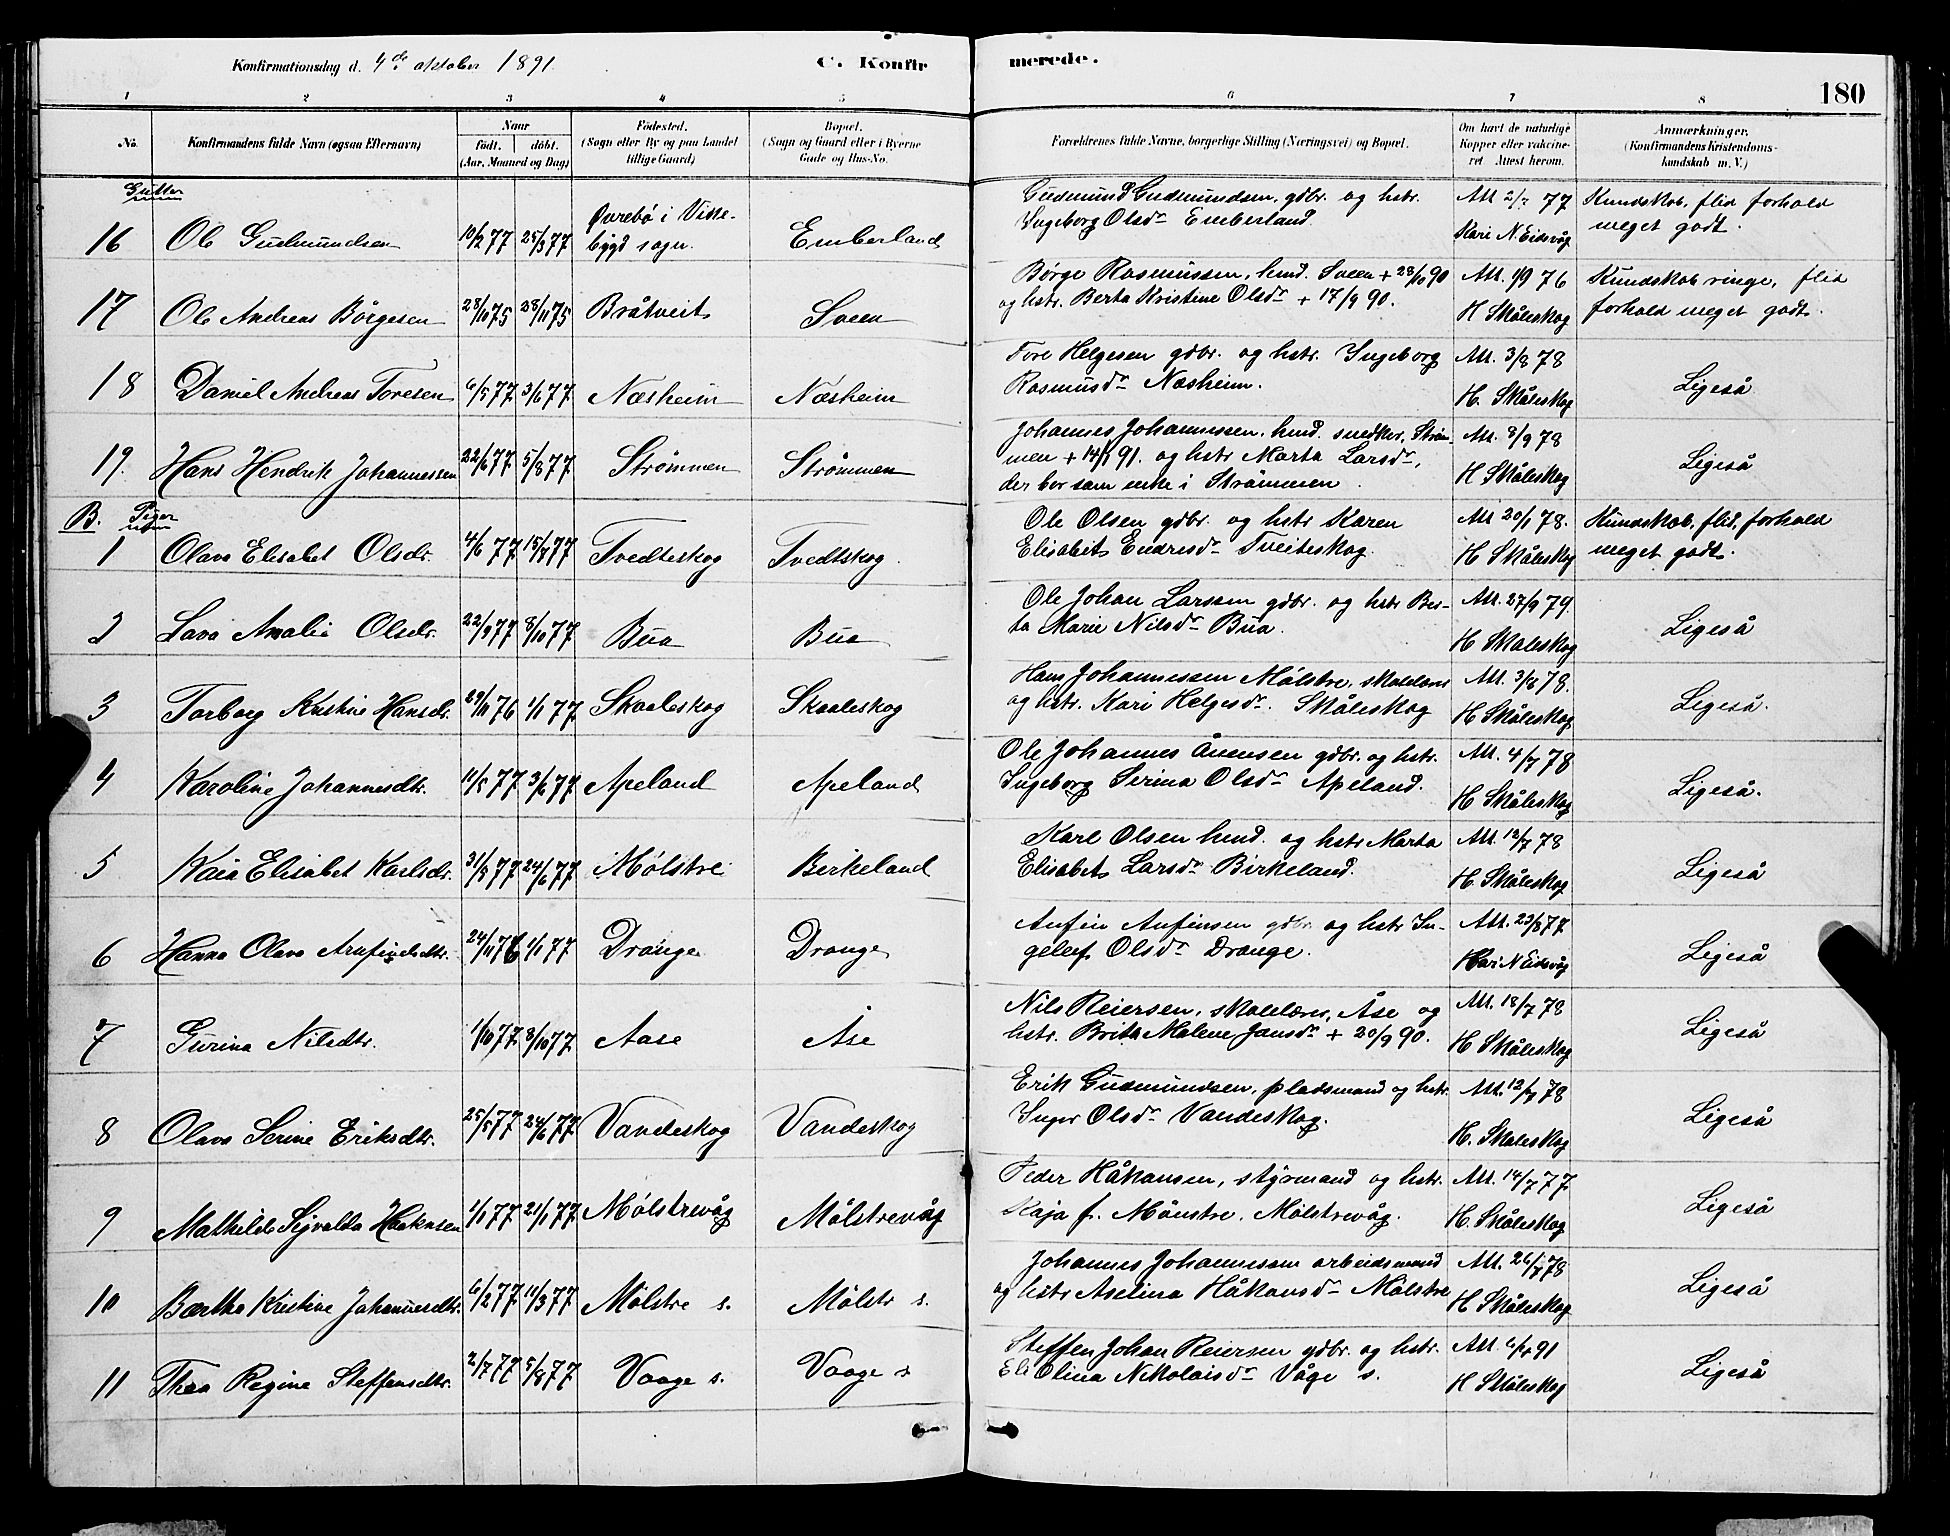 Konfirmationsdag d. 4de oktober 1891. C. Konfirmerede. 180
1 2 3 4 5 6 7 8
No. Konfirmandens fulde Navn (ogsaa Efternavn) Naar født. døbt. (Aar, Maaned og Dag) Fødested. (Sogn eller By og paa Landet tillige Gaard) Bopæl. (Sogn og Gaard eller i Byerne Gade og Hus-No. Forældrenes fulde Navne, borgerlige Stilling (Næringsvei) og Bopæl. Om havt de naturlige Kopper eller vaccineret Attest herom. Anmærkninger. (Konfirmandens Kristendomskundskab m. V.)
Gutter
16 Ole Gudmundsen 10/2 77 25/3 77 Øvrebö i Vissebygd sogn. Emberland Gudmund Gudmundsen, gdbr. og hstr. Ingeborg Olsdr Emberland. Att. 2/7 77 Kari N. Eidsvåg Kundskab, flid forhold meget godt.
17 Ole Andreas Börgesen 28/10 75 28/11 75 Bråtveit Sveen Børge Rasmussen, hmd. Sveen + 28/10 90 og hstr. Berta Kristine Olsdr + 17/9 90. Att. 1/9 76 H Skåleskog Kundskab ringe, flid forhold meget godt.
18 Daniel Andreas Toresen 6/5 77 3/6 77 Næsheim Næsheim Tore Helgesen gdbr. og hstr. Ingeborg Rasmusdr Næsheim. Att. 3/8 78 H. Skåleskog Ligeså
19. Hans Hendrik Johannessen 22/6 77 5/8 77 Strømmen Strømmen Johannes Johannessen, hmd. snedker, Strømmen + 14/1 91. og hstr Marta Larsdr, der bor som enke i Strømmen. Att. 8/9 78 H Skåleskog Ligeså
B. Piger
1 Olava Elisabet Olsdr. 4/6 77 15/7 77 Tvedteskog Tvedtskog. Ole Olsen gdbr. og hstr Karen Elisabet Endresdr Tveiteskog. Att 20/1 78. H Skåleskog Kundskab, flid, forhold meget godt.
2 Lava Amalie Olsdr. 22/9 77 8/10 77 Bua Bua Ole Johan Larssen gdbr. og hstr Berta Marie Nilsdr Bua. Att. 27/9 79. H Skaleskog Ligeså
3 Torborg Kristine Hansdr. 29/11 76 1/1 77 Skaaleskog Skaaleskog Hans Johannessen Mølstre, skolelærer og hstr. Kari Helgesdr. Skåleskog Att. 3/8 78. H Skåleskog Ligeså.
4 Karoline Johannesdtr. 11/5 77 3/6 77 Apeland Apeland Ole Johannes Ånensen gdbr. og hstr. Ingeborg Serina Olsdr Apeland. Att. 4/7 78 H Skåleskog Ligeså.
5 Kaia Elisabet Karlsdr. 31/5 77 24/6 77 Mølstre Birkeland Karl Olsen hmd. og hstr Marta Elisabet Larsdr Birkeland. Att. 12/7 78 H. Skåleskog Ligeså
6 Hanna Olava Anfindsdtr. 24/11 76 1/1 77 Drange Drange Anfin Anfinsen gdbr. og hstr Ingelef Olsdr Drange. Att. 23/8 77 Kari N Eidsvåg Ligeså
7 Gurina Nilsdtr. 1/10 77 8/10 77 Aase Åse Nils Reiersen, skolelærer, Åse og hstr. Britha Malene Jansdr + 20/9 90. Att. 18/7 78 H Skåleskog Ligeså
8 Olava Serine Eriksdtr. 25/5 77 24/6 77 Vandeskog Vandeskog Erik Gudmundsen, pladsmand og hstr. Inger Olsdr Vandeskog. Att. 12/7 78 H. Skaleskog Ligeså
9 Mathilde Sigvalda Haaknsen 1/1 77 21/1 77 Mølstrevåg Mølstrevåg Peder Håkansen, styrmand og hstr. Kaja f. Mønstre, Mølstrevåg. Att. 14/7 77. H. Skåleskog Ligeså
10 Bærtha Kristine Johannesdtr. 6/2 77 11/3 77 Mølstre s. Mølstr s. Johannes Johannessen arbeidsmand og hstr Aselina Håkansdr Mølstre Att. 26/7 78 H Skåleskog Ligeså
11 Thea Regine Steffensdtr. 2/7 77 5/8 77 Vaage s. Vaage s Steffen Johan Reiersen gdbr. og hstr. Eli Olina Nikolaisdr Våge s. Att. 6/4 91 H Skåleskog Ligeså